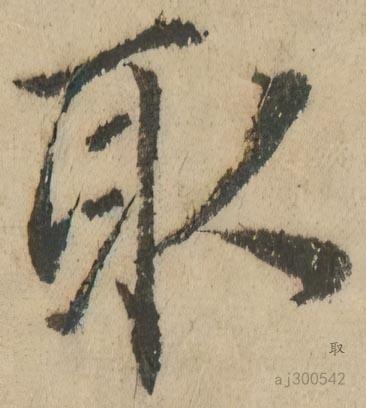 取
取
aj300542